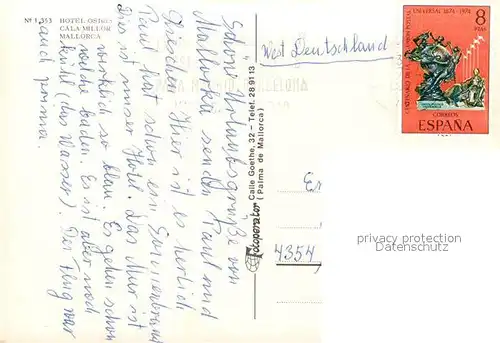 Nº 1.353 HOTEL OSIRIS
CALA MILLOR
MALLORCA
Schöne Urlaubsgrüße von
Mallorka senden Paul und
Hier ist es herrlich
Paul hat schon ein Sonnenbrand
Dies ist unser Hotel. Das Meer ist
wirklich so blau. Es gehen schon
welche baden. Es ist aber noch
kühl (das Wasser). Der Flug war
auch prima.
Fotoperator Calle Goethe, 32 - Telef. 28 91 13
(Palma de Mallorca)
West Deutschland
4354
CENTENARIO DE LA UNION POSTAL UNIVERSAL 1874-1974
8
PTAS
CORREOS
ESPAÑA
privacy protection
www.oldthing.de